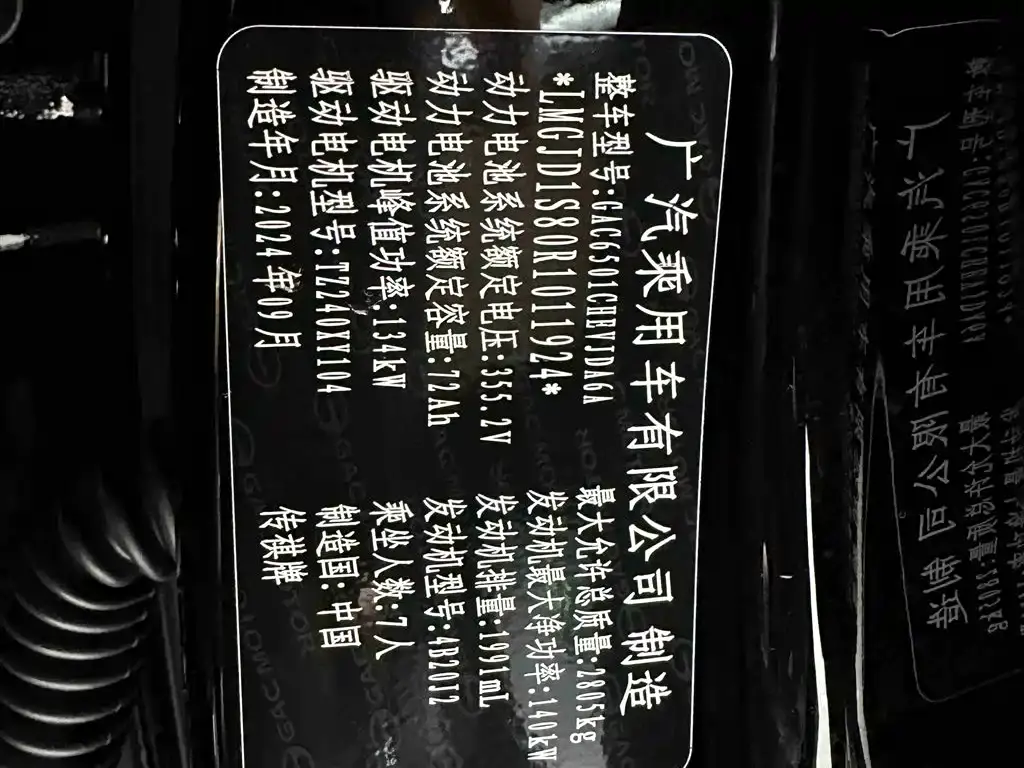 广汽乘用车有限公司 制造
整车型号:GAC6501CHEVJDA6A 最大允许总质量:2805kg
*LMGJD1S80R1011924* 发动机最大净功率:140kW
动力电池系统额定电压:355.2V 发动机排量:1991mL
动力电池系统额定容量:72Ah 发动机型号:4B20J2
驱动电机峰值功率:134kW 乘坐人数:7人
驱动电机型号:TZ240XY104 制造国:中国
制造年月:2024年09月 传祺牌